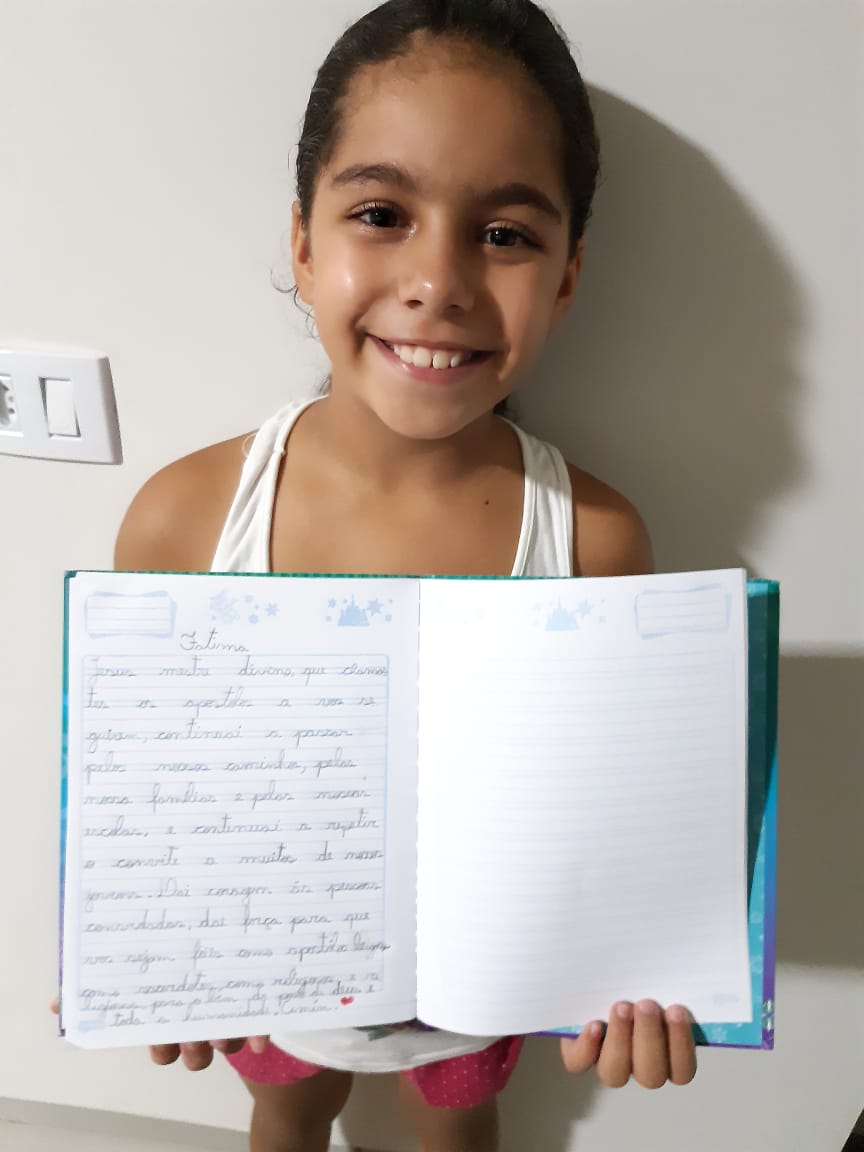 Fatima
Jesus mestre divino, que chamas
tes os apostolos a vos se
guirem, continuai a passar
pelos nossos caminhos, pelas
nossa famílias e pelas nossas
escolas, e continuai a repetir
o convite a muitos de nossos
jovens. Dai coragem às pessoas
convidadas, dai força para que
vos sejam fiéis como apostólos leigos
como sacerdotes, como religiosos, e re
ligiosas para o bem do povo de deus e
toda a humanidade. Amém.